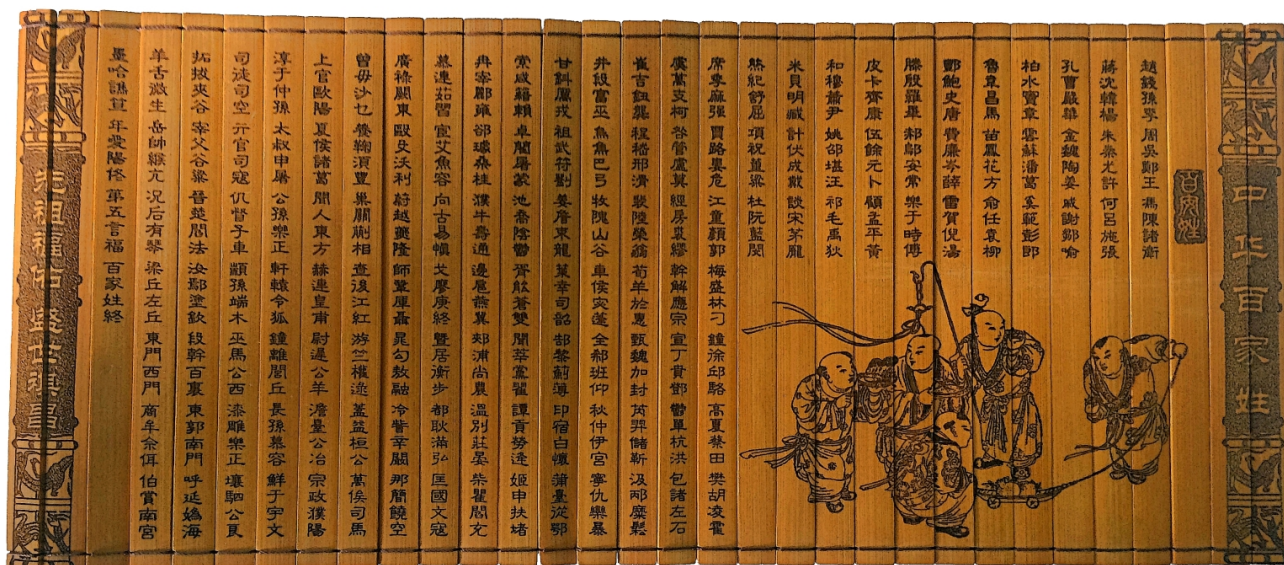 中华百家姓
百家姓
趙錢孫李 周吳鄭王 馮陳諸衛
蔣沈韓楊 朱秦尤許 何呂施張
孔曹嚴華 金魏陶姜 戚謝鄒喻
柏水竇章 雲蘇潘葛 奚範彭郎
魯韋昌馬 苗鳳花方 俞任袁柳
酆鮑史唐 費廉岑薛 雷賀倪湯
滕殷羅畢 郝鄔安常 樂于時傅
皮卡齊康 伍餘元卜 顧孟平黃
和穆蕭尹 姚邵堪汪 祁毛禹狄
米貝明臧 計伏成戴 談宋茅龐
熊紀舒屈 項祝董梁 杜阮藍閔
席季麻強 賈路婁危 江童顏郭 梅盛林刁 鐘徐邱駱 高夏蔡田 樊胡凌霍
虞萬支柯 昝管盧莫 經房裘繆 幹解應宗 宣丁賁鄧 鬱單杭洪 包諸左石
崔吉鈕龔 程嵇邢滑 裴陸榮翁 荀羊於惠 甄魏加封 芮羿儲靳 汲邴糜鬆
井段富巫 烏焦巴弓 牧隗山谷 車侯宓蓬 全郗班仰 秋仲伊宮 寧仇欒暴
甘鈄厲戎 祖武符劉 姜詹束龍 葉幸司韶 郜黎薊薄 印宿白懷 蒲臺從鄂
索咸籍賴 卓藺屠蒙 池喬陰鬱 胥能蒼雙 聞莘黨翟 譚貢勞逄 姬申扶堵
冉宰酈雍 郤璩桑桂 濮牛壽通 邊扈燕冀 郟浦尚農 溫別莊晏 柴瞿閻充
慕連茹習 宦艾魚容 向古易慎 戈廖庾終 暨居衡步 都耿滿弘 匡國文寇
廣祿闕東 毆殳沃利 蔚越夔隆 師鞏厙聶 晁勾敖融 冷訾辛闞 那簡饒空
曾毋沙乜 養鞠須豐 巢關蒯相 查後江紅 游竺權逯 蓋益桓公 萬俟司馬
上官歐陽 夏侯諸葛 聞人東方 赫連皇甫 尉遲公羊 澹臺公冶 宗政濮陽
淳于仲孫 太叔申屠 公孫樂正 軒轅令狐 鐘離閭丘 長孫慕容 鮮于宇文
司徒司空 亓官司寇 仉督子車 顓孫端木 巫馬公西 漆雕樂正 壤駟公良
拓拔夾谷 宰父谷梁 晉楚閆法 汝鄢塗欽 段幹百裏 東郭南門 呼延嬀海
羊舌微生 岳帥緱亢 況后有琴 梁丘左丘 東門西門 商牟佘佴 伯賞南宮
墨哈譙笪 年愛陽佟 第五言福 百家姓終
先祖福佑 盛世昌